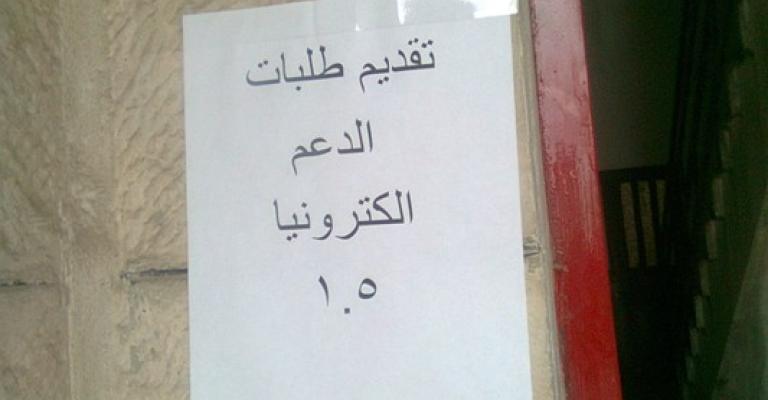 تقديم طلبات
الدعم
الكترونيا
١.٥